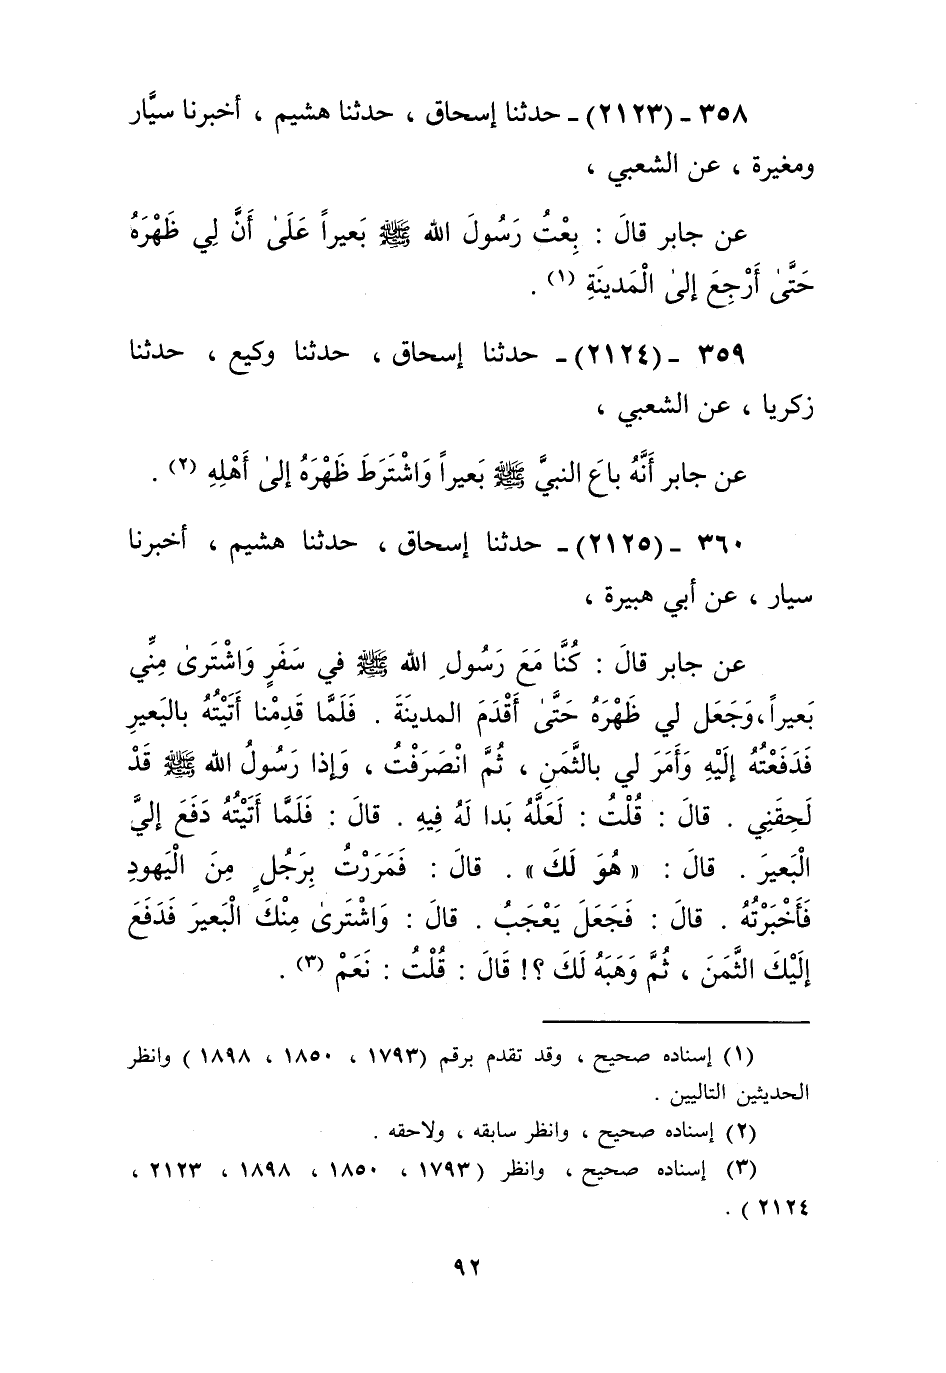 ٣٥٨ ـ (٢١٢٣) ـ حدثنا إسحاق ، حدثنا هشيم ، أخبرنا سيَّار
ومغيرة ، عن الشعبي ،
عن جابر قالَ : بِعْتُ رَسُولَ الله ﷺ بَعيراً عَلَىٰ أَنَّ لِي ظَهْرَهُ
حَتَّىٰ أَرْجِعَ إلىٰ الْمَدينَةِ (١) .
٣٥٩ ـ (٢١٢٤) ـ حدثنا إسحاق ، حدثنا وكيع ، حدثنا
زكريا ، عن الشعبي ،
عن جابر أَنَّهُ باعَ النبيَّ ﷺ بَعيراً وَاشْتَرَطَ ظَهْرَهُ إلىٰ أَهْلِهِ (٢) .
٣٦٠ ـ (٢١٢٥) ـ حدثنا إسحاق ، حدثنا هشيم ، أخبرنا
سيار ، عن أبي هبيرة ،
عن جابر قالَ : كُنَّا مَعَ رَسُولِ الله ﷺ في سَفَرٍ وَاشْتَرىٰ مِنِّي
بَعيراً،وَجَعَل لي ظَهْرَهُ حَتَّىٰ أَقْدَمَ المدينَةَ . فَلَمَّا قَدِمْنا أَتَيْتُهُ بالبَعيرِ
فَدَفَعْتُهُ إلَيْهِ وَأَمَرَ لي بالثَّمَنِ ، ثُمَّ انْصَرَفْتُ ، وَإذا رَسُولُ الله ﷺ قَدْ
لَحِقَنِي . قالَ : قُلْتُ : لَعَلَّهُ بَدا لَهُ فِيهِ . قالَ : فَلَمَّا أَتَيْتُهُ دَفَعَ إليَّ
الْبَعيرَ . قالَ : « هُوَ لَكَ » . قالَ : فَمَرَرْتُ بِرَجُلٍ مِنَ الْيَهودِ
فَأَخْبَرْتُهُ . قالَ : فَجَعَلَ يَعْجَبُ . قالَ : وَاشْتَرىٰ مِنْكَ الْبَعيرَ فَدَفَعَ
إلَيْكَ الثَّمَنَ ، ثُمَّ وَهَبَهُ لَكَ ؟! قَالَ : قُلْتُ : نَعَمْ (٣) .
(١) إسناده صحيح ، وقد تقدم برقم (١٧٩٣ ، ١٨٥٠ ، ١٨٩٨ ) وانظر
الحديثين التاليين .
(٢) إسناده صحيح ، وانظر سابقه ، ولاحقه .
(٣) إسناده صحيح ، وانظر (١٧٩٣ ، ١٨٥٠ ، ١٨٩٨ ، ٢١٢٣ ،
٢١٢٤ ) .
٩٢